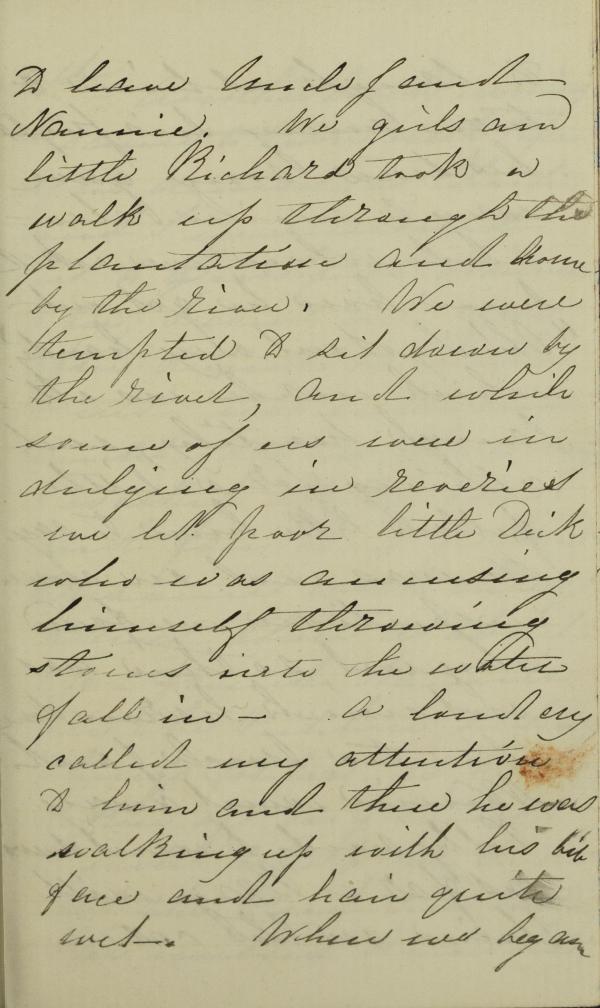 to leave Uncle J and
Nannie. We girls and
little Richard took a
walk up through the
plantation and home
by the river. We were
tempted to sit down by
the river, and while
some of us were in
dulging in reveries
we let poor little Dick
who was amusing
himself throwing
stones into the water
fall in — A loud cry
called my attention
to him and there he was
walking up with his bib
face and hair quite
wet —. When we began